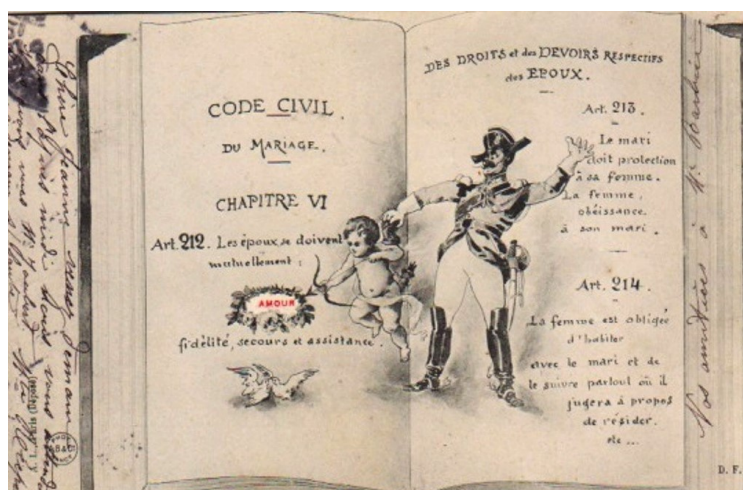 CODE CIVIL
DU MARIAGE.
CHAPITRE VI
Art. 212. Les époux se doivent
mutuellement :
AMOUR
fidélité, secours et assistance.
DES DROITS et des DEVOIRS RESPECTIFS
des EPOUX.
Art. 213.
Le mari
doit protection
à sa femme.
La femme,
obéissance
à son mari.
Art. 214.
La femme est obligée
d'habiter
avec le mari et de
le suivre partout où il
jugera à propos
de résider.
etc...
D. F.
Chère Jeanne venez demain
Nos amitiés à